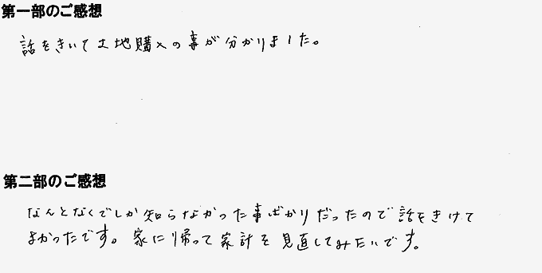 第一部のご感想
話をきいて土地購入の事が分かりました。
第二部のご感想
なんとなくでしか知らなかった事ばかりだったので話をきけて
よかったです。家に帰って家計を見直してみたいです。